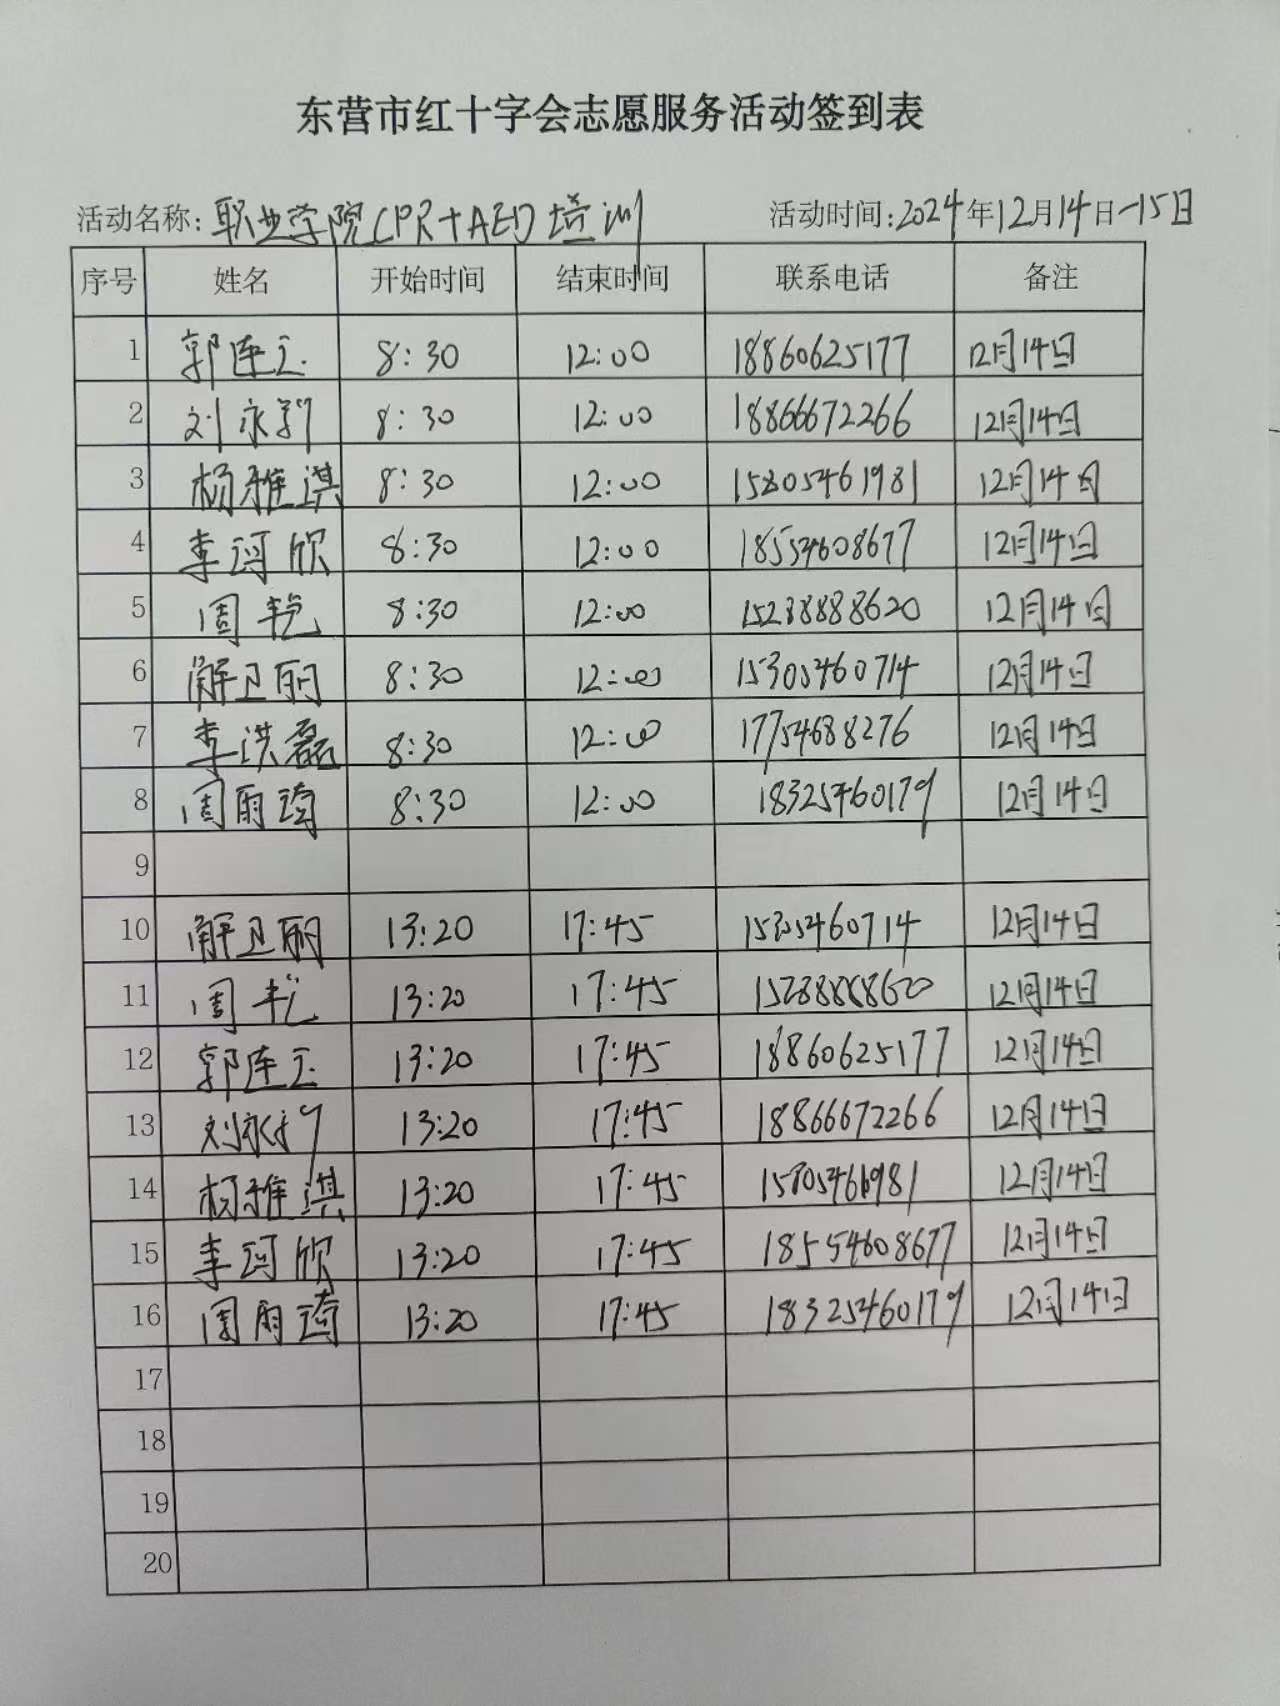 东营市红十字会志愿服务活动签到表
活动名称: 职业学院CPR+AED培训 活动时间: 2024年12月14日-15日
序号 姓名 开始时间 结束时间 联系电话 备注
1 郭连玉 8:30 12:00 18860625177 12月14日
2 刘永 8:30 12:00 18866672266 12月14日
3 杨雅淇 8:30 12:00 15805461981 12月14日
4 李珂欣 8:30 12:00 18554608677 12月14日
5 周艳 8:30 12:00 15288888620 12月14日
6 解卫丽 8:30 12:00 15305460714 12月14日
7 李洪磊 8:30 12:00 17754688276 12月14日
8 周雨琦 8:30 12:00 18325460179 12月14日
9
10 解卫丽 13:20 17:45 15305460714 12月14日
11 周艳 13:20 17:45 12月14日
12 郭连玉 13:20 17:45 18860625177 12月14日
13 刘永 13:20 17:45 18866672266 12月14日
14 杨雅淇 13:20 17:45 15805461981 12月14日
15 李珂欣 13:20 17:45 18554608677 12月14日
16 周雨琦 13:20 17:45 18325460179 12月14日
17
18
19
20